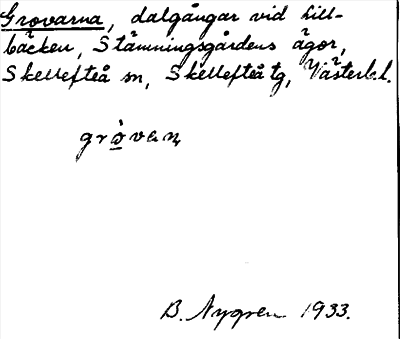 Grovarna, dalgångar vid Lill-
bäcken, Stämningsgårdens ägor,
Skellefteå sn, Skellefteå tg, Västerb. l.
B. Nygren 1933.